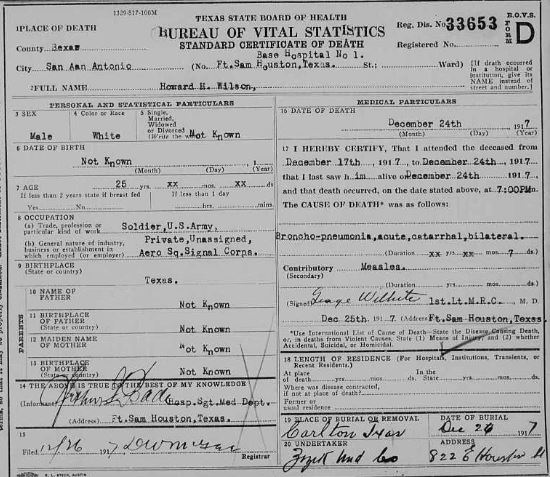 1129-517-100M
TEXAS STATE BOARD OF HEALTH
BUREAU OF VITAL STATISTICS
STANDARD CERTIFICATE OF DEATH
Reg. Dis. No. 33653
B.O.V.S.
FORM D
Registered No.
1 PLACE OF DEATH
County Bexar
City San Aan Antonio
Base Hospital No 1.
(No. Ft.Sam Houston,Texas. St.; Ward)
[If death occurred in a hospital or institution, give its NAME instead of street and number.]
2 FULL NAME Howard H. Wilson,
PERSONAL AND STATISTICAL PARTICULARS
3 SEX
Male
4 Color or Race
White
5 Single, Married, Widowed or Divorced (Write the word) Not Known
6 DATE OF BIRTH
Not Known
(Month) (Day) (Year)
7 AGE 25 yrs. xx mos. xx ds
If less than 2 years state if breast fed
Yes No
If less than 1 day
hrs. min.
8 OCCUPATION
(a) Trade, profession or particular kind of work Soldier,U.S.Army,
(b) General nature of industry, business or establishment in which employed (or employer) Private,Unassigned,
Aero Sq.Signal Corps.
9 BIRTHPLACE
(State or Country) Texas.
PARENTS
10 NAME OF FATHER Not Known
11 BIRTHPLACE OF FATHER
(State or country) Not Known
12 MAIDEN NAME OF MOTHER Not Known
13 BIRTHPLACE OF MOTHER
(State or country) Not Known
14 THE ABOVE IS TRUE TO THE BEST OF MY KNOWLEDGE
(Informant) Hosp.Sgt.Med Dept.
Ft.Sam Houston,Texas.
15
Filed 191
Registrar
MEDICAL PARTICULARS
16 DATE OF DEATH
December 24th 1917
(Month) (Day) (Year)
17 I HEREBY CERTIFY, That I attended the deceased from
December 17th 1917 to December 24th, 1917
that I last saw him alive on December 24th 1917
and that death occurred, on the date stated above, at 7:00PM m.
The CAUSE OF DEATH* was as follows:
Broncho-pneumonia,acute,catarrhal,bilateral.
(Duration) xx yrs xx mos. 7 ds.
Contributory Measles.
(Secondary)
(Duration) yrs. mos. ds.
(Signed) George Wilhite 1st.Lt.M.R.C., M. D.
Dec 25th 1917 (Address) Ft.Sam Houston,Texas.
*Use International List of Cause of Death—State the Disease Causing Death, or, in deaths from Violent Causes, State (1) Means of Injury, and (2) whether Accidental, Suicidal, or Homicidal.
18 LENGTH OF RESIDENCE (For Hospitals, Institutions, Transients, or Recent Residents.)
At place of death yrs. mos. ds. In the State yrs. mos. ds.
Where was disease contracted, if not at place of death?
Former or usual residence
19 PLACE OF BURIAL OR REMOVAL
Carlton Texas
DATE OF BURIAL
Dec 26 1917
20 UNDERTAKER
ADDRESS
822 E Houston St